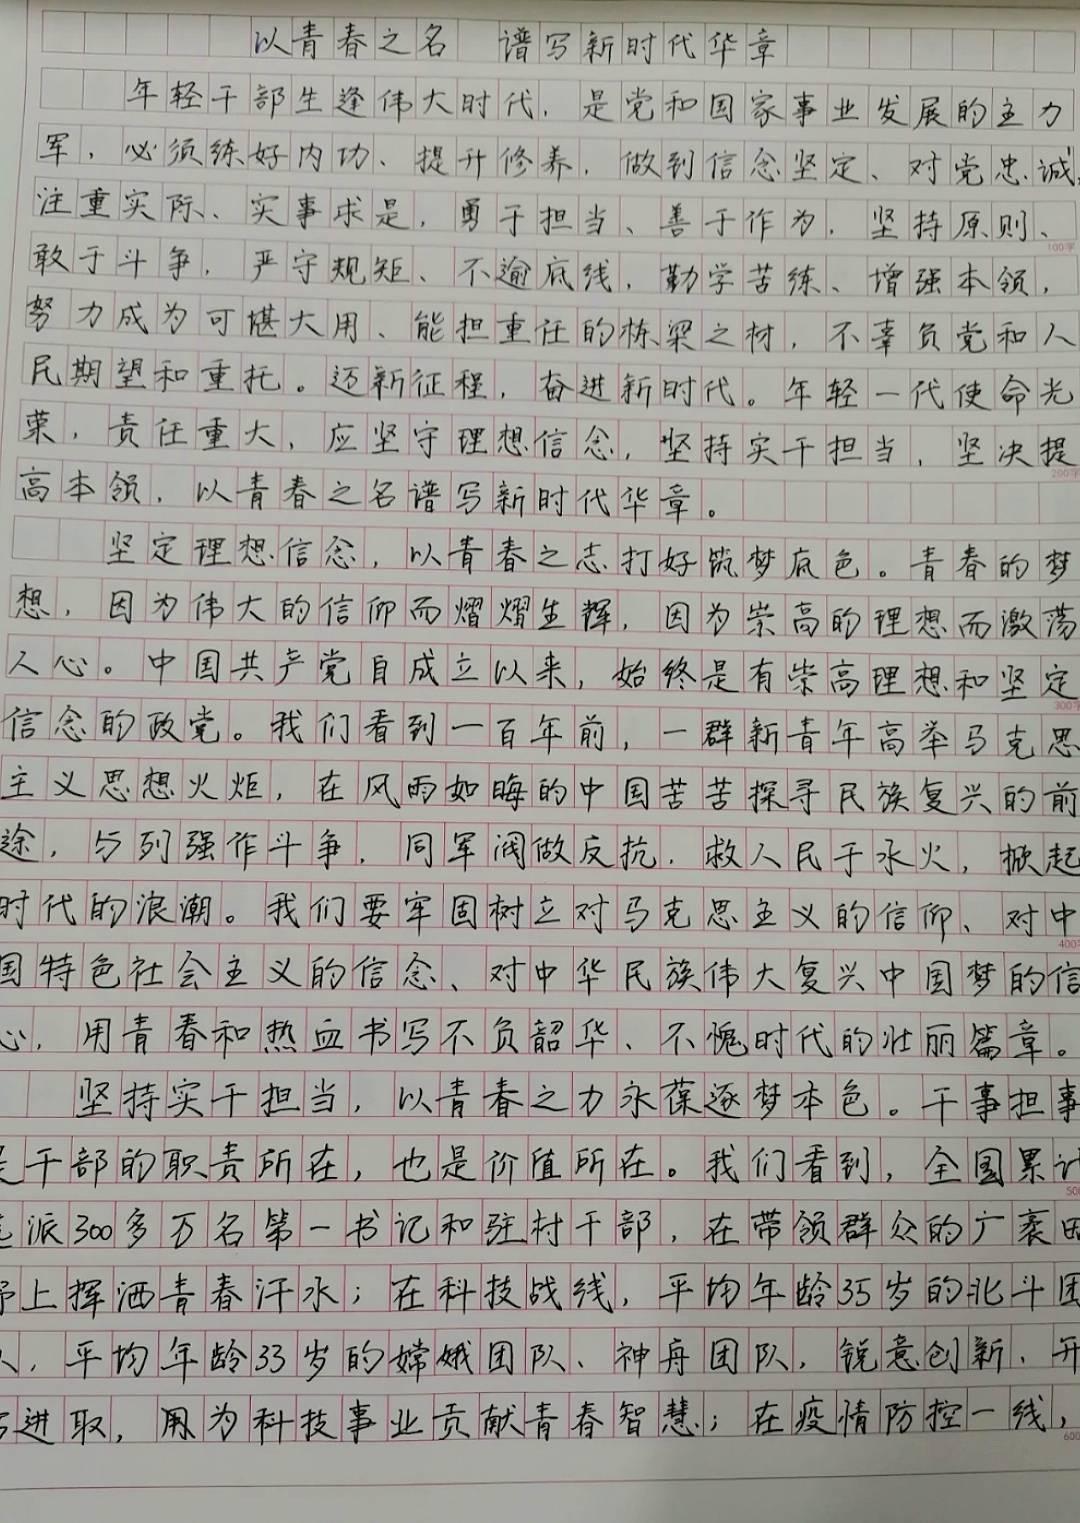 以青春之名 谱写新时代华章
年轻干部生逢伟大时代，是党和国家事业发展的主力
军，必须练好内功、提升修养，做到信念坚定、对党忠诚，
注重实际、实事求是，勇于担当、善于作为，坚持原则、
100字
敢于斗争，严守规矩、不逾底线，勤学苦练、增强本领，
努力成为可堪大用、能担重任的栋梁之材，不辜负党和人
民期望和重托。迈新征程，奋进新时代。年轻一代使命光
荣，责任重大，应坚守理想信念，坚持实干担当，坚决提
200字
高本领，以青春之名谱写新时代华章。
坚定理想信念，以青春之志打好筑梦底色。青春的梦
想，因为伟大的信仰而熠熠生辉，因为崇高的理想而激荡
人心。中国共产党自成立以来，始终是有崇高理想和坚定
300字
信念的政党。我们看到一百年前，一群新青年高举马克思
主义思想火炬，在风雨如晦的中国苦苦探寻民族复兴的前
途，与列强作斗争，同军阀做反抗，救人民于水火，掀起
时代的浪潮。我们要牢固树立对马克思主义的信仰、对中
400字
国特色社会主义的信念、对中华民族伟大复兴中国梦的信
心，用青春和热血书写不负韶华、不愧时代的壮丽篇章。
坚持实干担当，以青春之力永葆逐梦本色。干事担事
是干部的职责所在，也是价值所在。我们看到，全国累计
500
选派300多万名第一书记和驻村干部，在带领群众的广袤田
野上挥洒青春汗水；在科技战线，平均年龄35岁的北斗团
队，平均年龄33岁的嫦娥团队、神舟团队，锐意创新、开
进取，用为科技事业贡献青春智慧；在疫情防控一线，
600